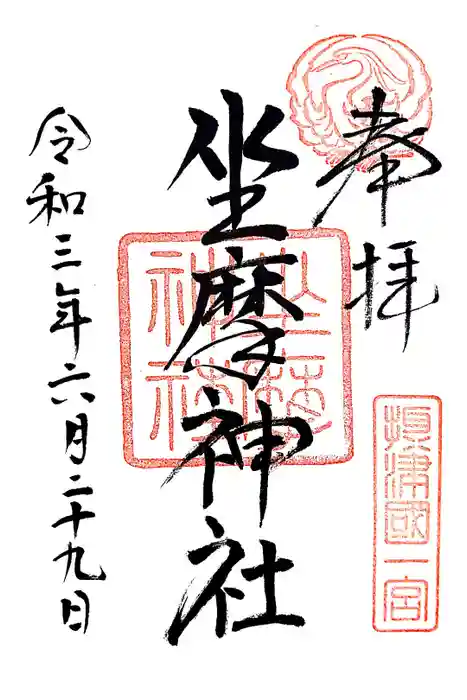 奉拝
攝津國一宮
坐摩神社
令和三年六月二十九日